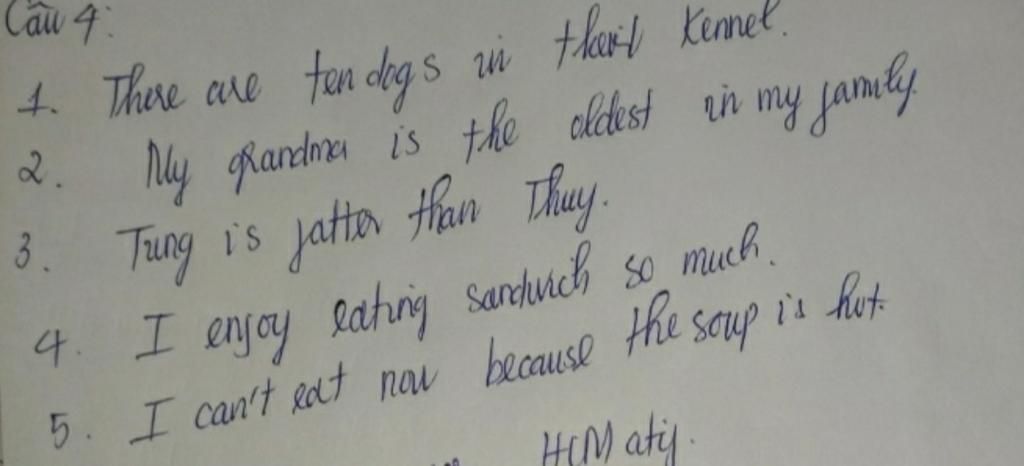 Câu 4:
1. There are ten dogs in their kennel.
2. My grandma is the oldest in my family.
3. Tung is fatter than Thuy.
4. I enjoy eating sandwich so much.
5. I can't eat now because the soup is hot.
HCM city.